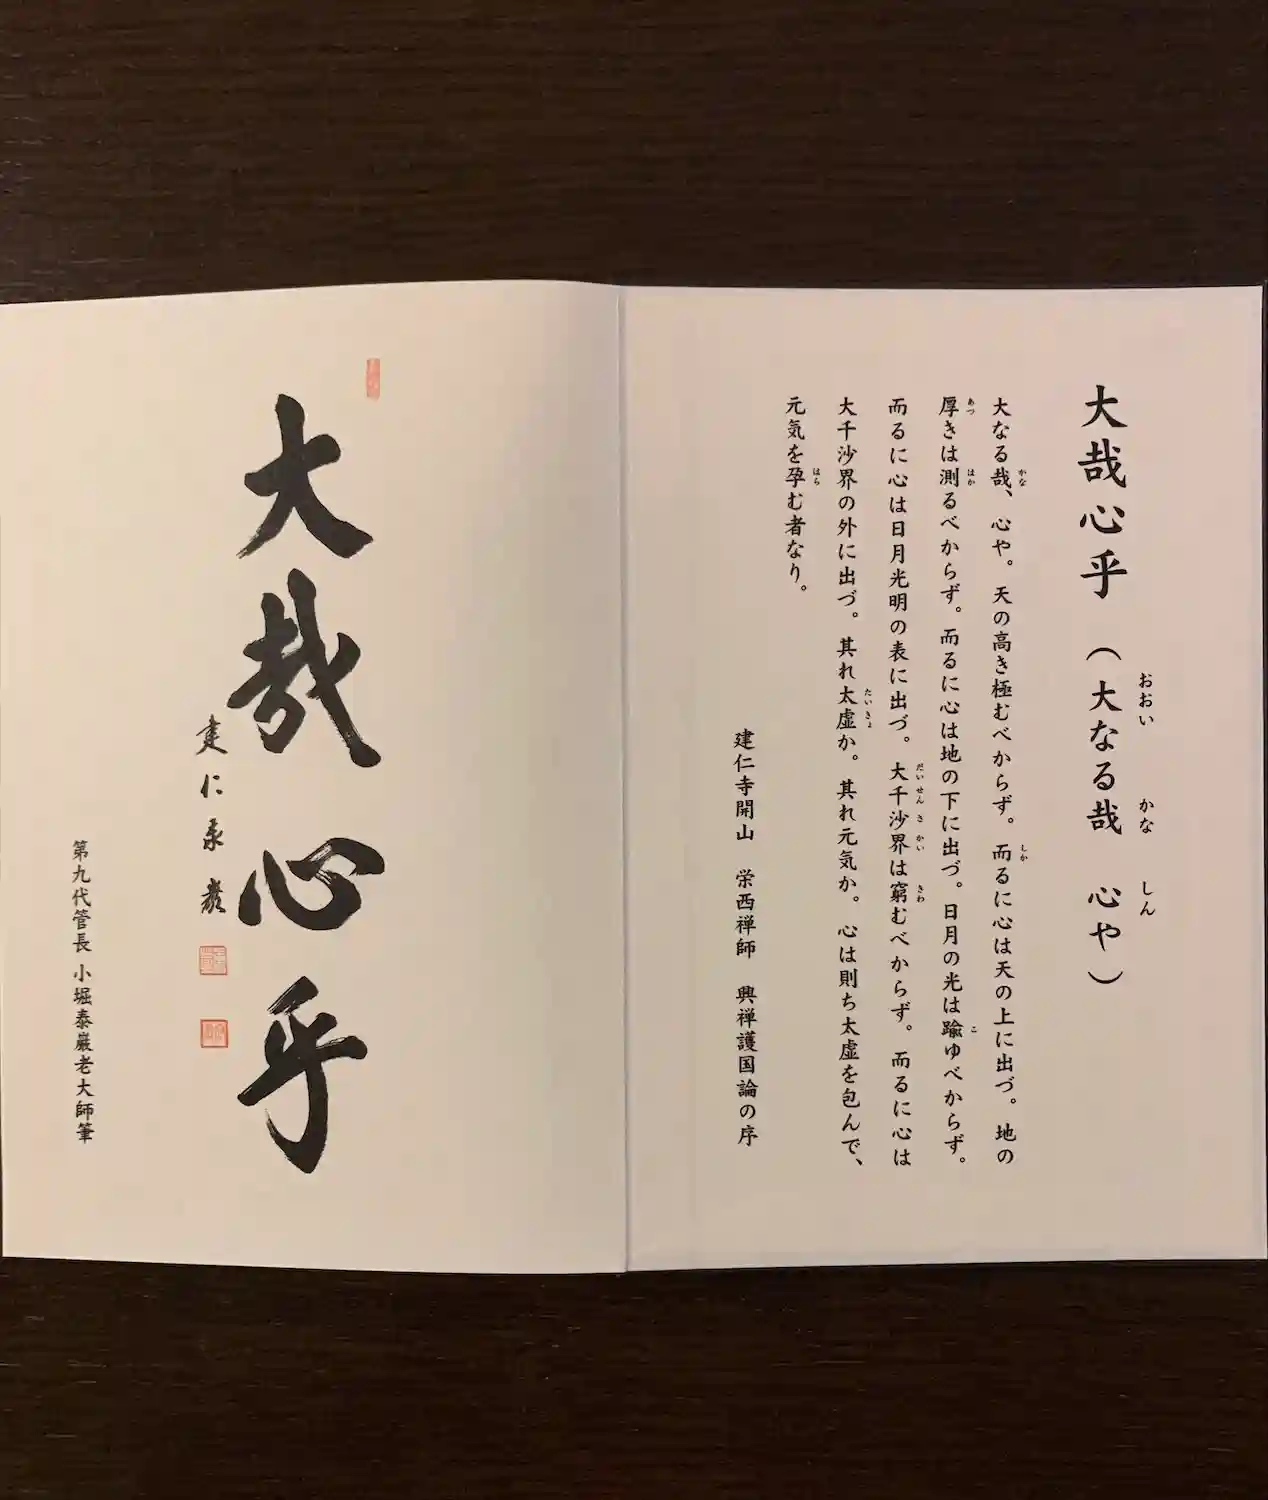 大哉心乎(大なる哉 心や)
おおい かな しん
大なる哉、心や。天の高き極むべからず。而るに心は天の上に出づ。地の
厚きは測るべからず。而るに心は地の下に出づ。日月の光は踰ゆべからず。
而るに心は日月光明の表に出づ。大千沙界は窮むべからず。而るに心は
大千沙界の外に出づ。其れ太虚か。其れ元気か。心は則ち太虚を包んで、
元気を孕む者なり。
建仁寺開山 栄西禅師 興禅護国論の序
大哉心乎
建仁泰巖
第九代管長 小堀泰巖老大師筆